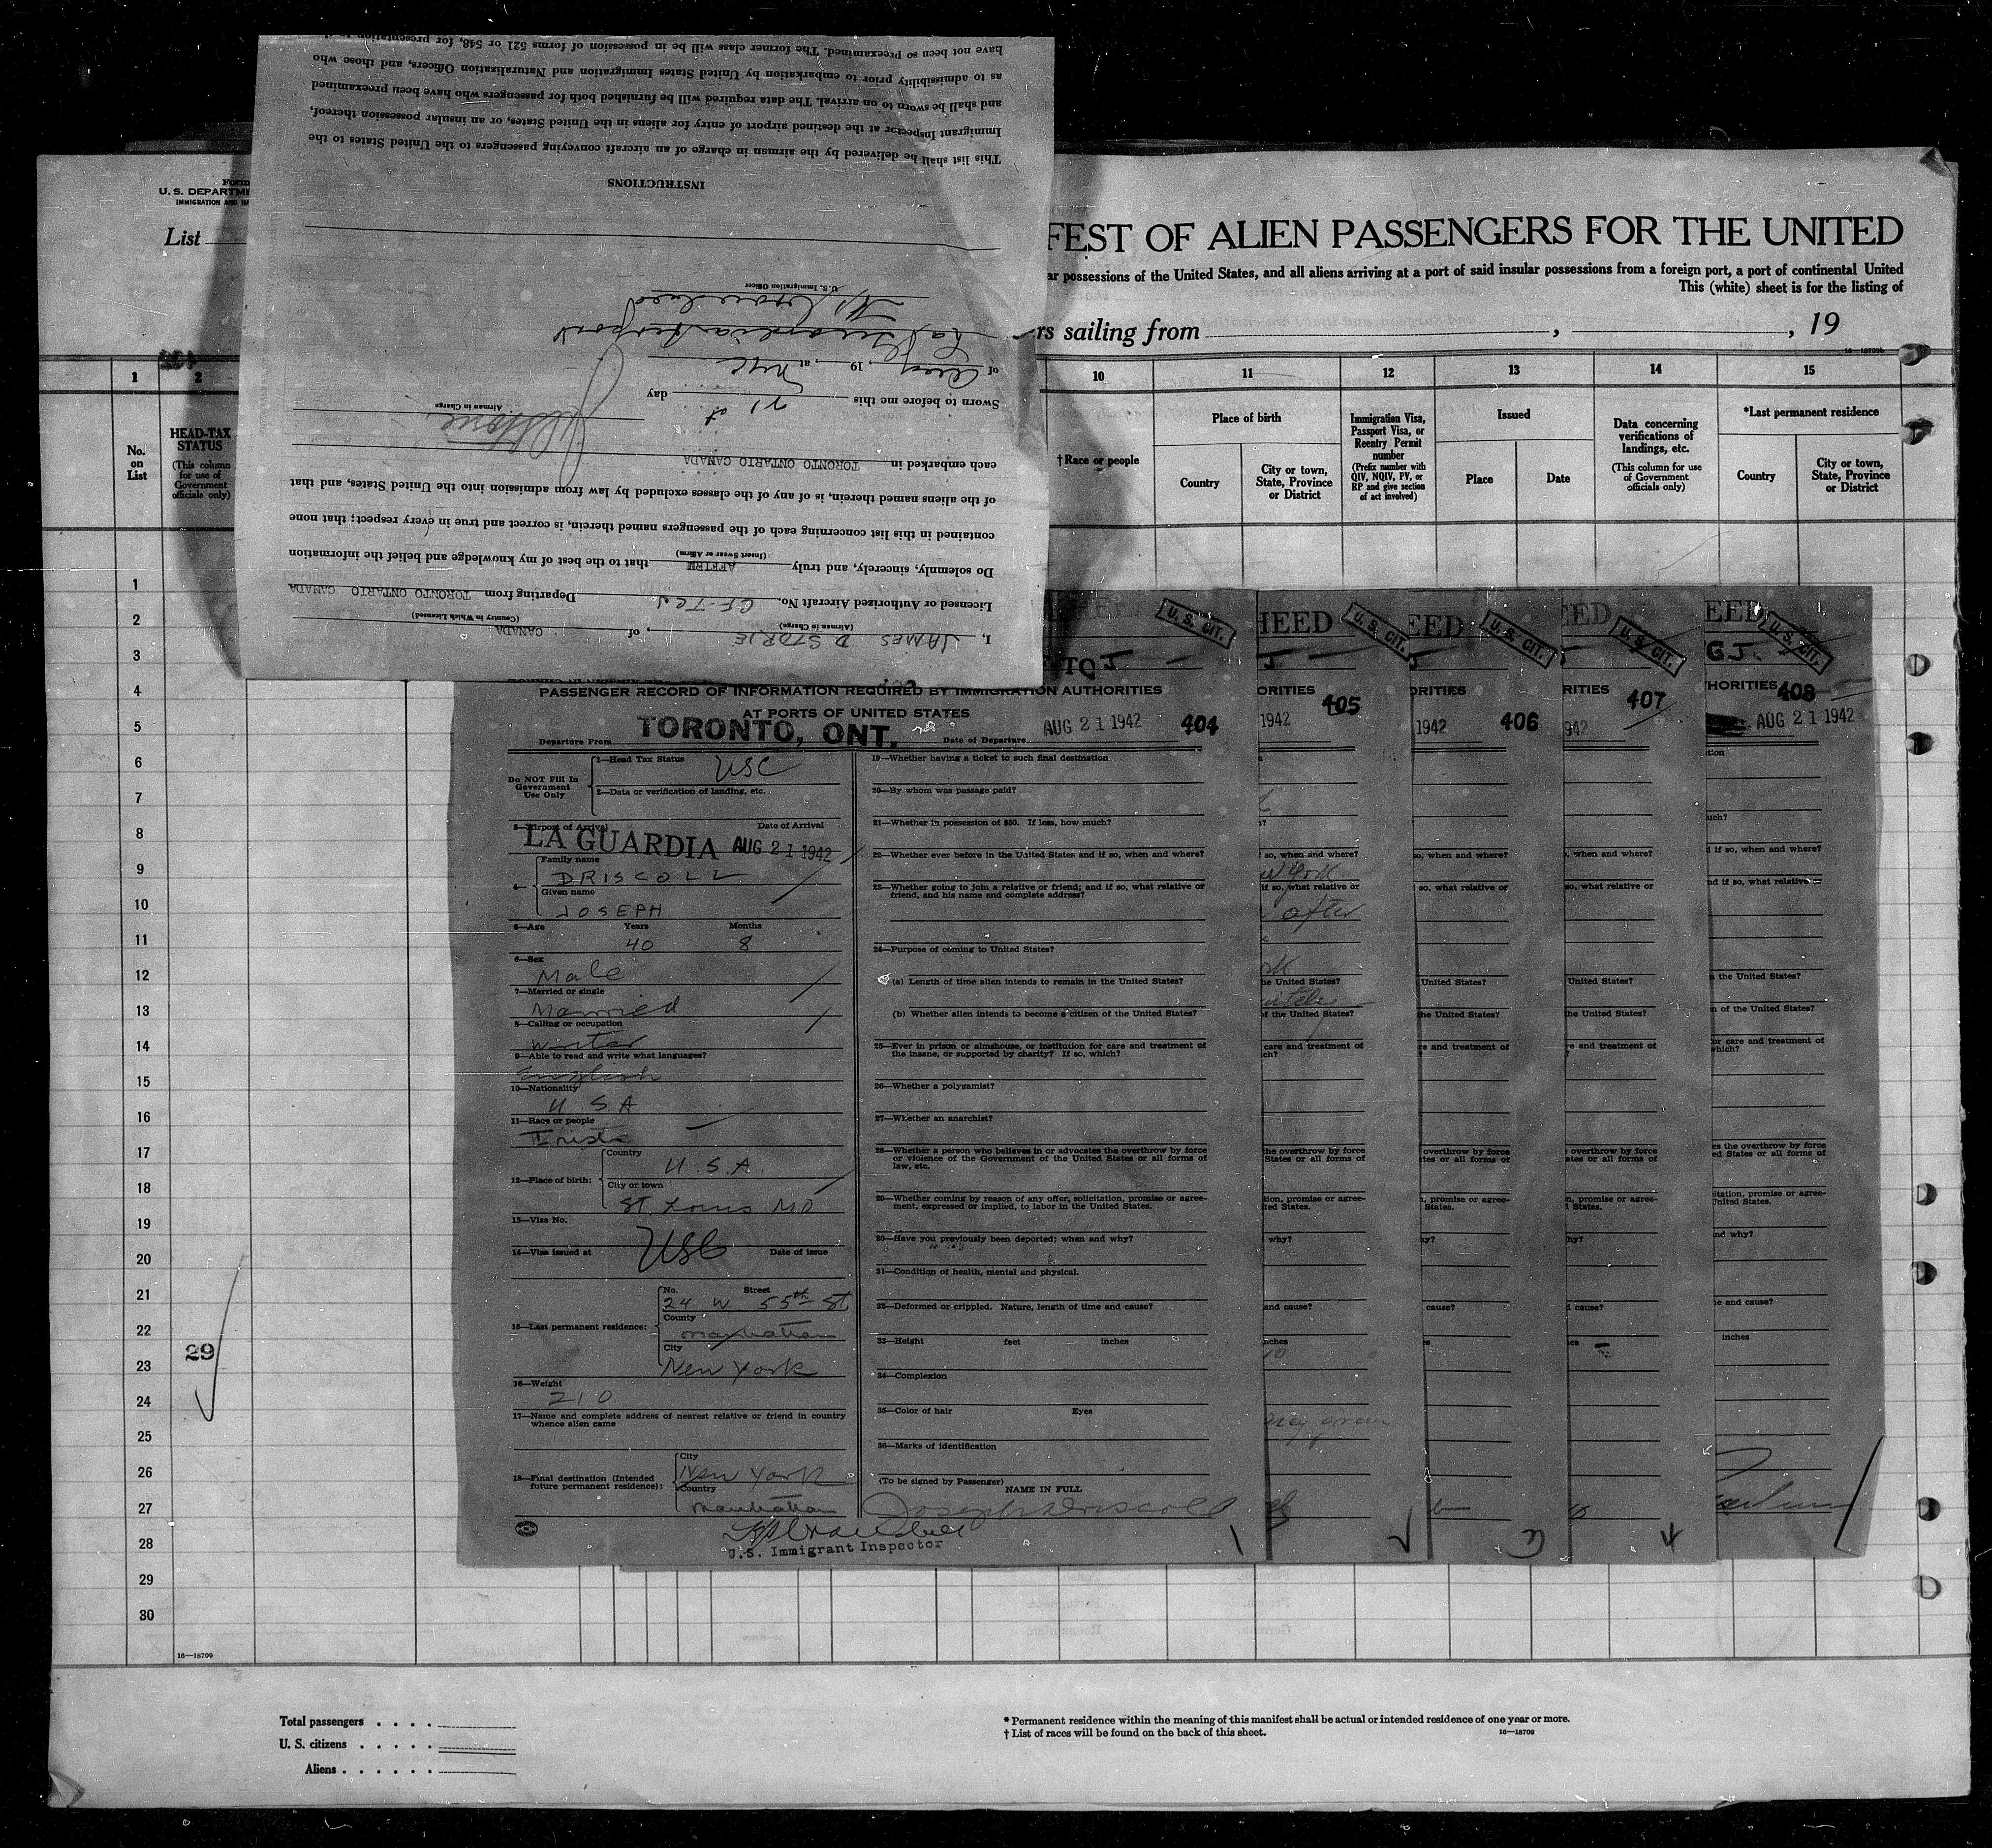 have not been so preexamined. The former class will be in possession of forms 521 or 548, for presentation
as to admissibility prior to embarkation by United States Immigration and Naturalization Officers, and those who
and shall be sworn to on arrival. The data required will be furnished both for passengers who have been preexamined
Immigrant Inspector at the destined airport of entry for aliens in the United States, or an insular possession thereof,
This list shall be delivered by the airman in charge of an aircraft conveying passengers to the United States to the
INSTRUCTIONS
U.S. Immigration Officer
La Guardia Airport
of Aug, 19, at NYC
Sworn to before me this 21st day
Airman in Charge
each embarked in TORONTO ONTARIO CANADA
of the aliens named therein, is of any of the classes excluded by law from admission into the United States, and that
contained in this list concerning each of the passengers named therein, is correct and true in every respect; that none
(Insert Swear or Affirm)
Do solemnly, sincerely, and truly AFFIRM that to the best of my knowledge and belief the information
Licensed or Authorized Aircraft No. CF-TCJ Departing from TORONTO ONTARIO CANADA
(Airman in Charge) (Country in Which Licensed)
I, JAMES D STORIE, of CANADA
Form
U. S. DEPARTME
IMMIGRATION AND NA
List
FEST OF ALIEN PASSENGERS FOR THE UNITED
ar possessions of the United States, and all aliens arriving at a port of said insular possessions from a foreign port, a port of continental United
This (white) sheet is for the listing of
rs sailing from , , 19
16—18709b
1 2 10 11 12 13 14 15
No. on List
HEAD-TAX STATUS
(This column for use of Government officials only)
†Race or people
Place of birth
Country
City or town, State, Province or District
Immigration Visa, Passport Visa, or Reentry Permit number
(Prefix number with QIV, NQIV, PV, or RP and give section of act involved)
Issued
Place
Date
Data concerning verifications of landings, etc.
(This column for use of Government officials only)
*Last permanent residence
Country
City or town, State, Province or District
1
2
3
4
5
6
7
8
9
10
11
12
13
14
15
16
17
18
19
20
21
22
23
24
25
26
27
28
29
30
29
16—18709
U. S. CIT.
TCJ
PASSENGER RECORD OF INFORMATION REQUIRED BY IMMIGRATION AUTHORITIES
AT PORTS OF UNITED STATES
Departure From TORONTO, ONT. Date of Departure AUG 21 1942 404
Do NOT Fill In Government Use Only
1—Head Tax Status USC
2—Data or verification of landing, etc.
3—Airport of Arrival Date of Arrival
LA GUARDIA AUG 21 1942
4—
Family name
DRISCOLL
Given name
JOSEPH
5—Age Years Months
40 8
6—Sex
Male
7—Married or single
Married
8—Calling or occupation
writer
9—Able to read and write what languages?
English
10—Nationality
U S A
11—Race or people
Irish
12—Place of birth:
Country
U. S. A.
City or town
St. Louis MO
13—Visa No.
14—Visa issued at USC Date of issue
15—Last permanent residence:
No. Street
24 W 55th St
County
Manhattan
City
New York
16—Weight
210
17—Name and complete address of nearest relative or friend in country whence alien came
18—Final destination (Intended future permanent residence):
City
New York
Country
Manhattan
U.S. Immigrant Inspector
19—Whether having a ticket to such final destination
20—By whom was passage paid?
21—Whether in possession of $50. If less, how much?
22—Whether ever before in the United States and if so, when and where?
23—Whether going to join a relative or friend; and if so, what relative or friend, and his name and complete address?
24—Purpose of coming to United States?
(a) Length of time alien intends to remain in the United States?
(b) Whether alien intends to become a citizen of the United States?
25—Ever in prison or almshouse, or institution for care and treatment of the insane, or supported by charity? If so, which?
26—Whether a polygamist?
27—Whether an anarchist?
28—Whether a person who believes in or advocates the overthrow by force or violence of the Government of the United States or all forms of law, etc.
29—Whether coming by reason of any offer, solicitation, promise or agreement, expressed or implied, to labor in the United States.
30—Have you previously been deported; when and why?
31—Condition of health, mental and physical.
32—Deformed or crippled. Nature, length of time and cause?
33—Height feet inches
34—Complexion
35—Color of hair Eyes
36—Marks of identification
(To be signed by Passenger)
NAME IN FULL
Joseph Driscoll
HEED U. S. CIT.
ORITIES 405
1942
EED U. S. CIT.
ORITIES
1942 406
EED U. S. CIT.
RITIES 407
942
EED U. S. CIT.
GJ.
HORITIES 408
AUG 21 1942
Total passengers
U. S. citizens
Aliens
* Permanent residence within the meaning of this manifest shall be actual or intended residence of one year or more.
† List of races will be found on the back of this sheet. 16—18709